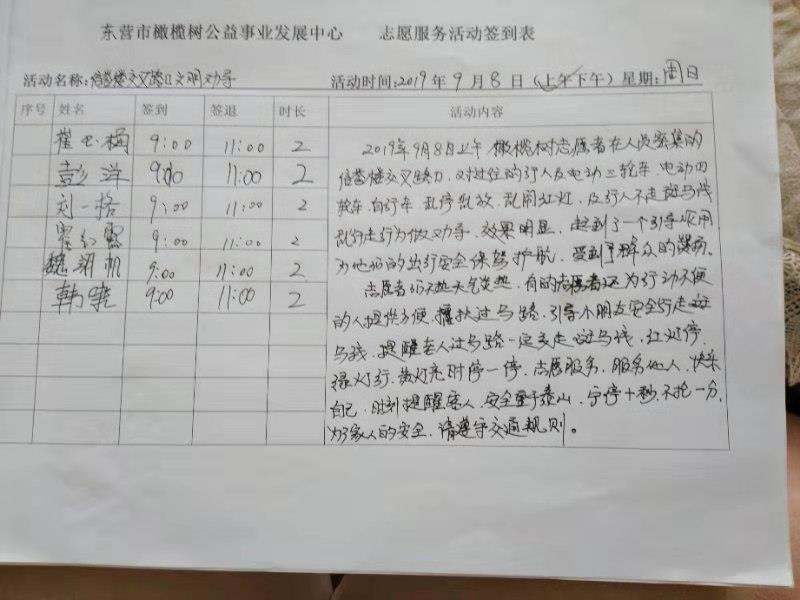 东营市橄榄树公益事业发展中心 志愿服务活动签到表
活动名称:信誉楼交叉路口文明劝导 活动时间:2019年9月8日(上午下午)星期:周日
序号 姓名 签到 签退 时长 活动内容
崔 梅 9:00 11:00 2
彭洋 9:00 11:00 2
刘一格 9:00 11:00 2
翟红霞 9:00 11:00 2
魏翔帆 9:00 11:00 2
韩晓 9:00 11:00 2
2019年9月8日上午橄榄树志愿者在人员密集的
信誉楼交叉路口,对过往的行人及电动三轮车、电动四
轮车、自行车、乱停乱放、乱闯红灯、及行人不走斑马线
乱行走行为做劝导、效果明显、起到了一个引导作用
为他们的出行安全保驾护航,受到了群众的
志愿者们不怕天气炎热、有的志愿者还为行动不便
的人提供方便、搀扶过马路、引导小朋友安全行走斑
马线、提醒老人过马路一定要走斑马线、红灯停、
绿灯行、黄灯亮时停一停、志愿服务、服务他人、快乐
自己、时刻提醒客人、安全重于泰山、宁停十秒、不抢一分、
为了家人的安全、请遵守交通规则。